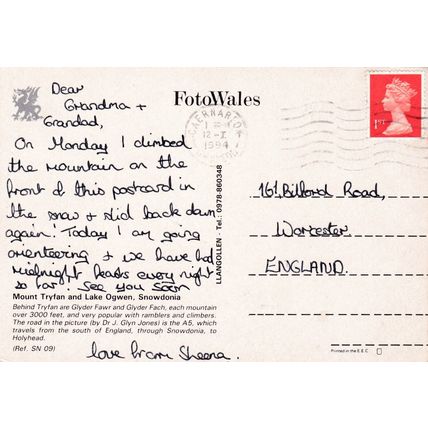 Dear
Grandma +
Grandad,
On Monday I climbed
the mountain on the
front of this postcard in
the snow + slid back down
again! Today I am going
orienteering + we have had
midnight feasts every night
so far! See you soon
love from Sheena.
FotoWales
CAERNARFON
12-I
1994
1ST
LLANGOLLEN - Tel.: 0978-860348
161, Bilford Road,
Worcester
ENGLAND.
Mount Tryfan and Lake Ogwen, Snowdonia
Behind Tryfan are Glyder Fawr and Glyder Fach, each mountain
over 3000 feet, and very popular with ramblers and climbers.
The road in the picture (by Dr J. Glyn Jones) is the A5, which
travels from the south of England, through Snowdonia, to
Holyhead.
(Ref. SN 09)
Printed in the E.E.C